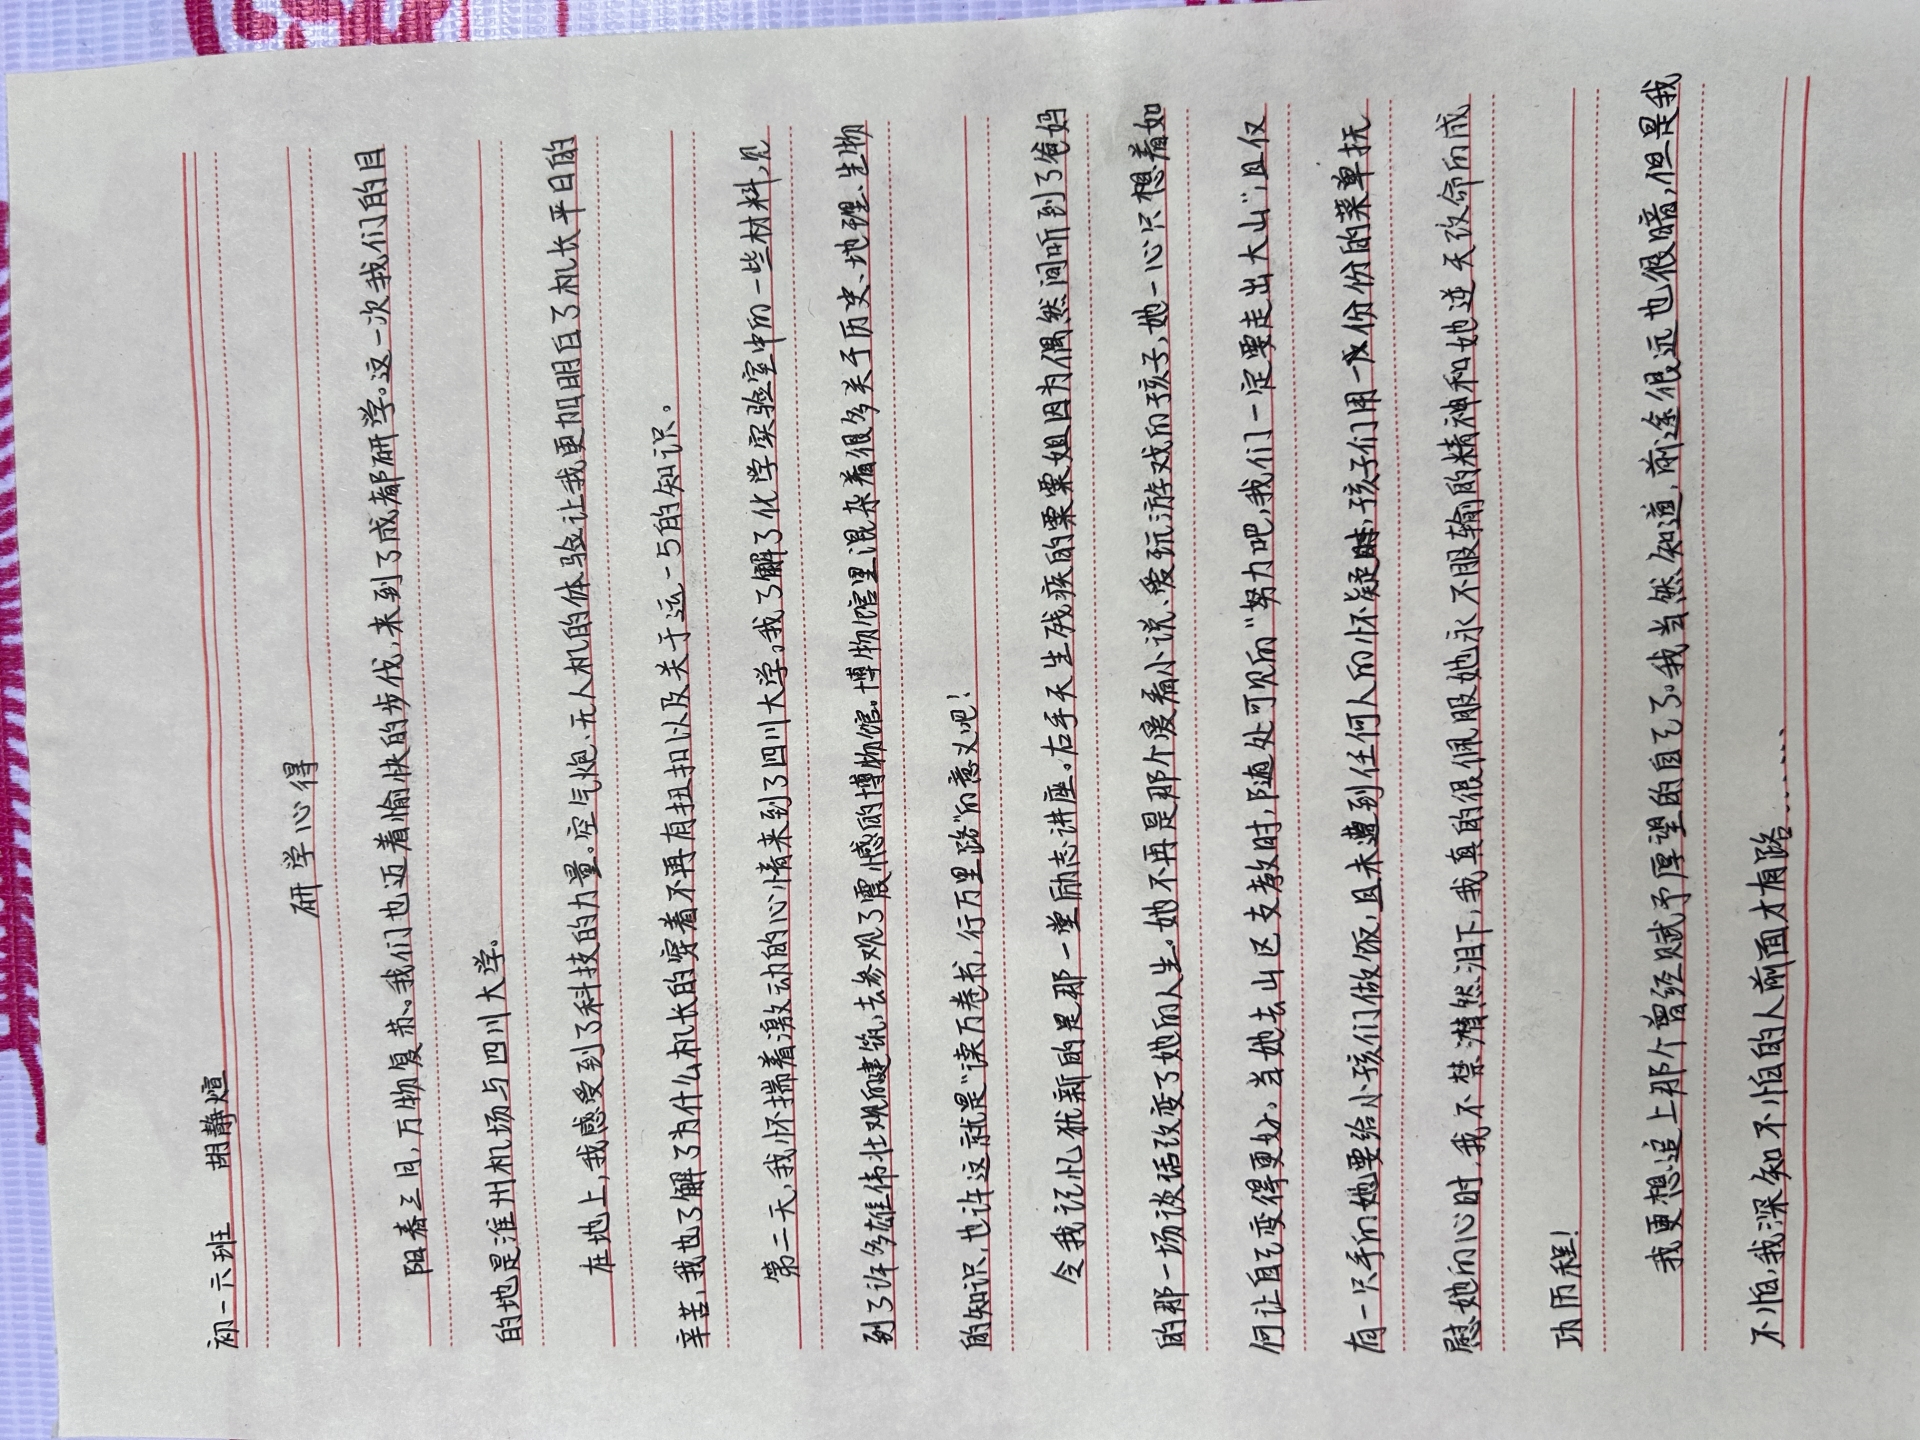 初一六班 胡静煊
研学心得
阳春三月，万物复苏。我们也迈着愉快的步伐，来到了成都研学。这一次我们的目
的地是淮州机场与四川大学。
在地上，我感受到了科技的力量。空气炮、无人机的体验让我更加明白了机长平日的
辛苦，我也了解了为什么机长的穿着不再有扭扣以及关于运一5的知识。
第二天，我怀揣着激动的心情来到了四川大学。我了解了化学实验室中的一些材料，见
到了许多雄伟壮观的建筑，去参观了震憾的博物馆。博物馆里混杂着很多关于历史、地理、生物
的知识，也许这就是“读万卷书，行万里路”的意义吧！
令我记忆犹新的是那一堂励志讲座。右手天生残疾的粟粟姐因为偶然间听到了爸妈
的那一场谈话改变了她的人生。她不再是那个爱看小说、爱玩游戏的孩子，她一心只想着如
何让自己变得更好。当她去山区支教时，随处可见的“努力吧，我们一定要走出大山”，且仅
有一只手的她要给小孩们做饭，且未遭到任何人的怀疑时，孩子们用一份份的菜单抚
慰她的心时，我不禁潸然泪下，我真的很佩服她永不服输的精神和她逆天改命的成
功历程！
我更想追上那个曾经赋予厚望的自己了。我当然知道，前途很远也很暗，但是我
不怕，我深知不怕的人前面才有路……